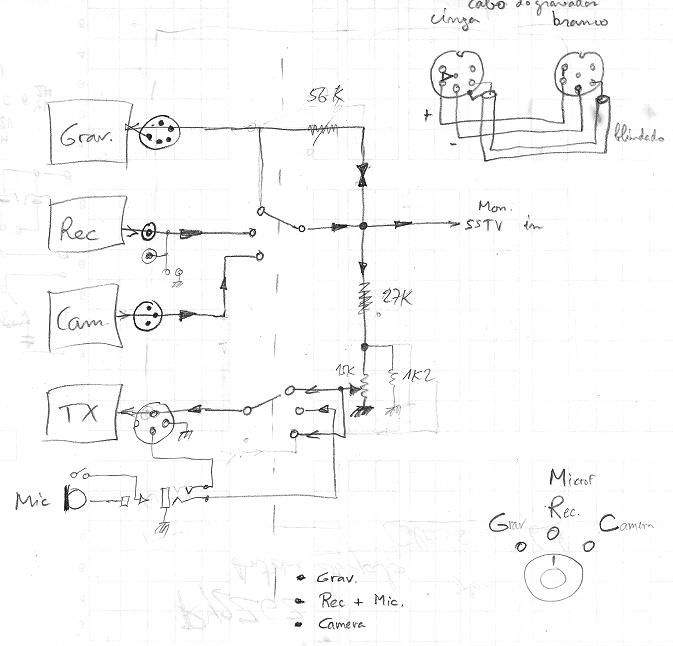 cabo do gravador
cinza
branco
+
-
blindado
56K
Grav.
Rec
Mon.
SSTV in
Cam
27K
15K
1K2
TX
Mic
Microf
Rec.
Grav
Camera
• Grav.
• Rec + Mic.
• Camera